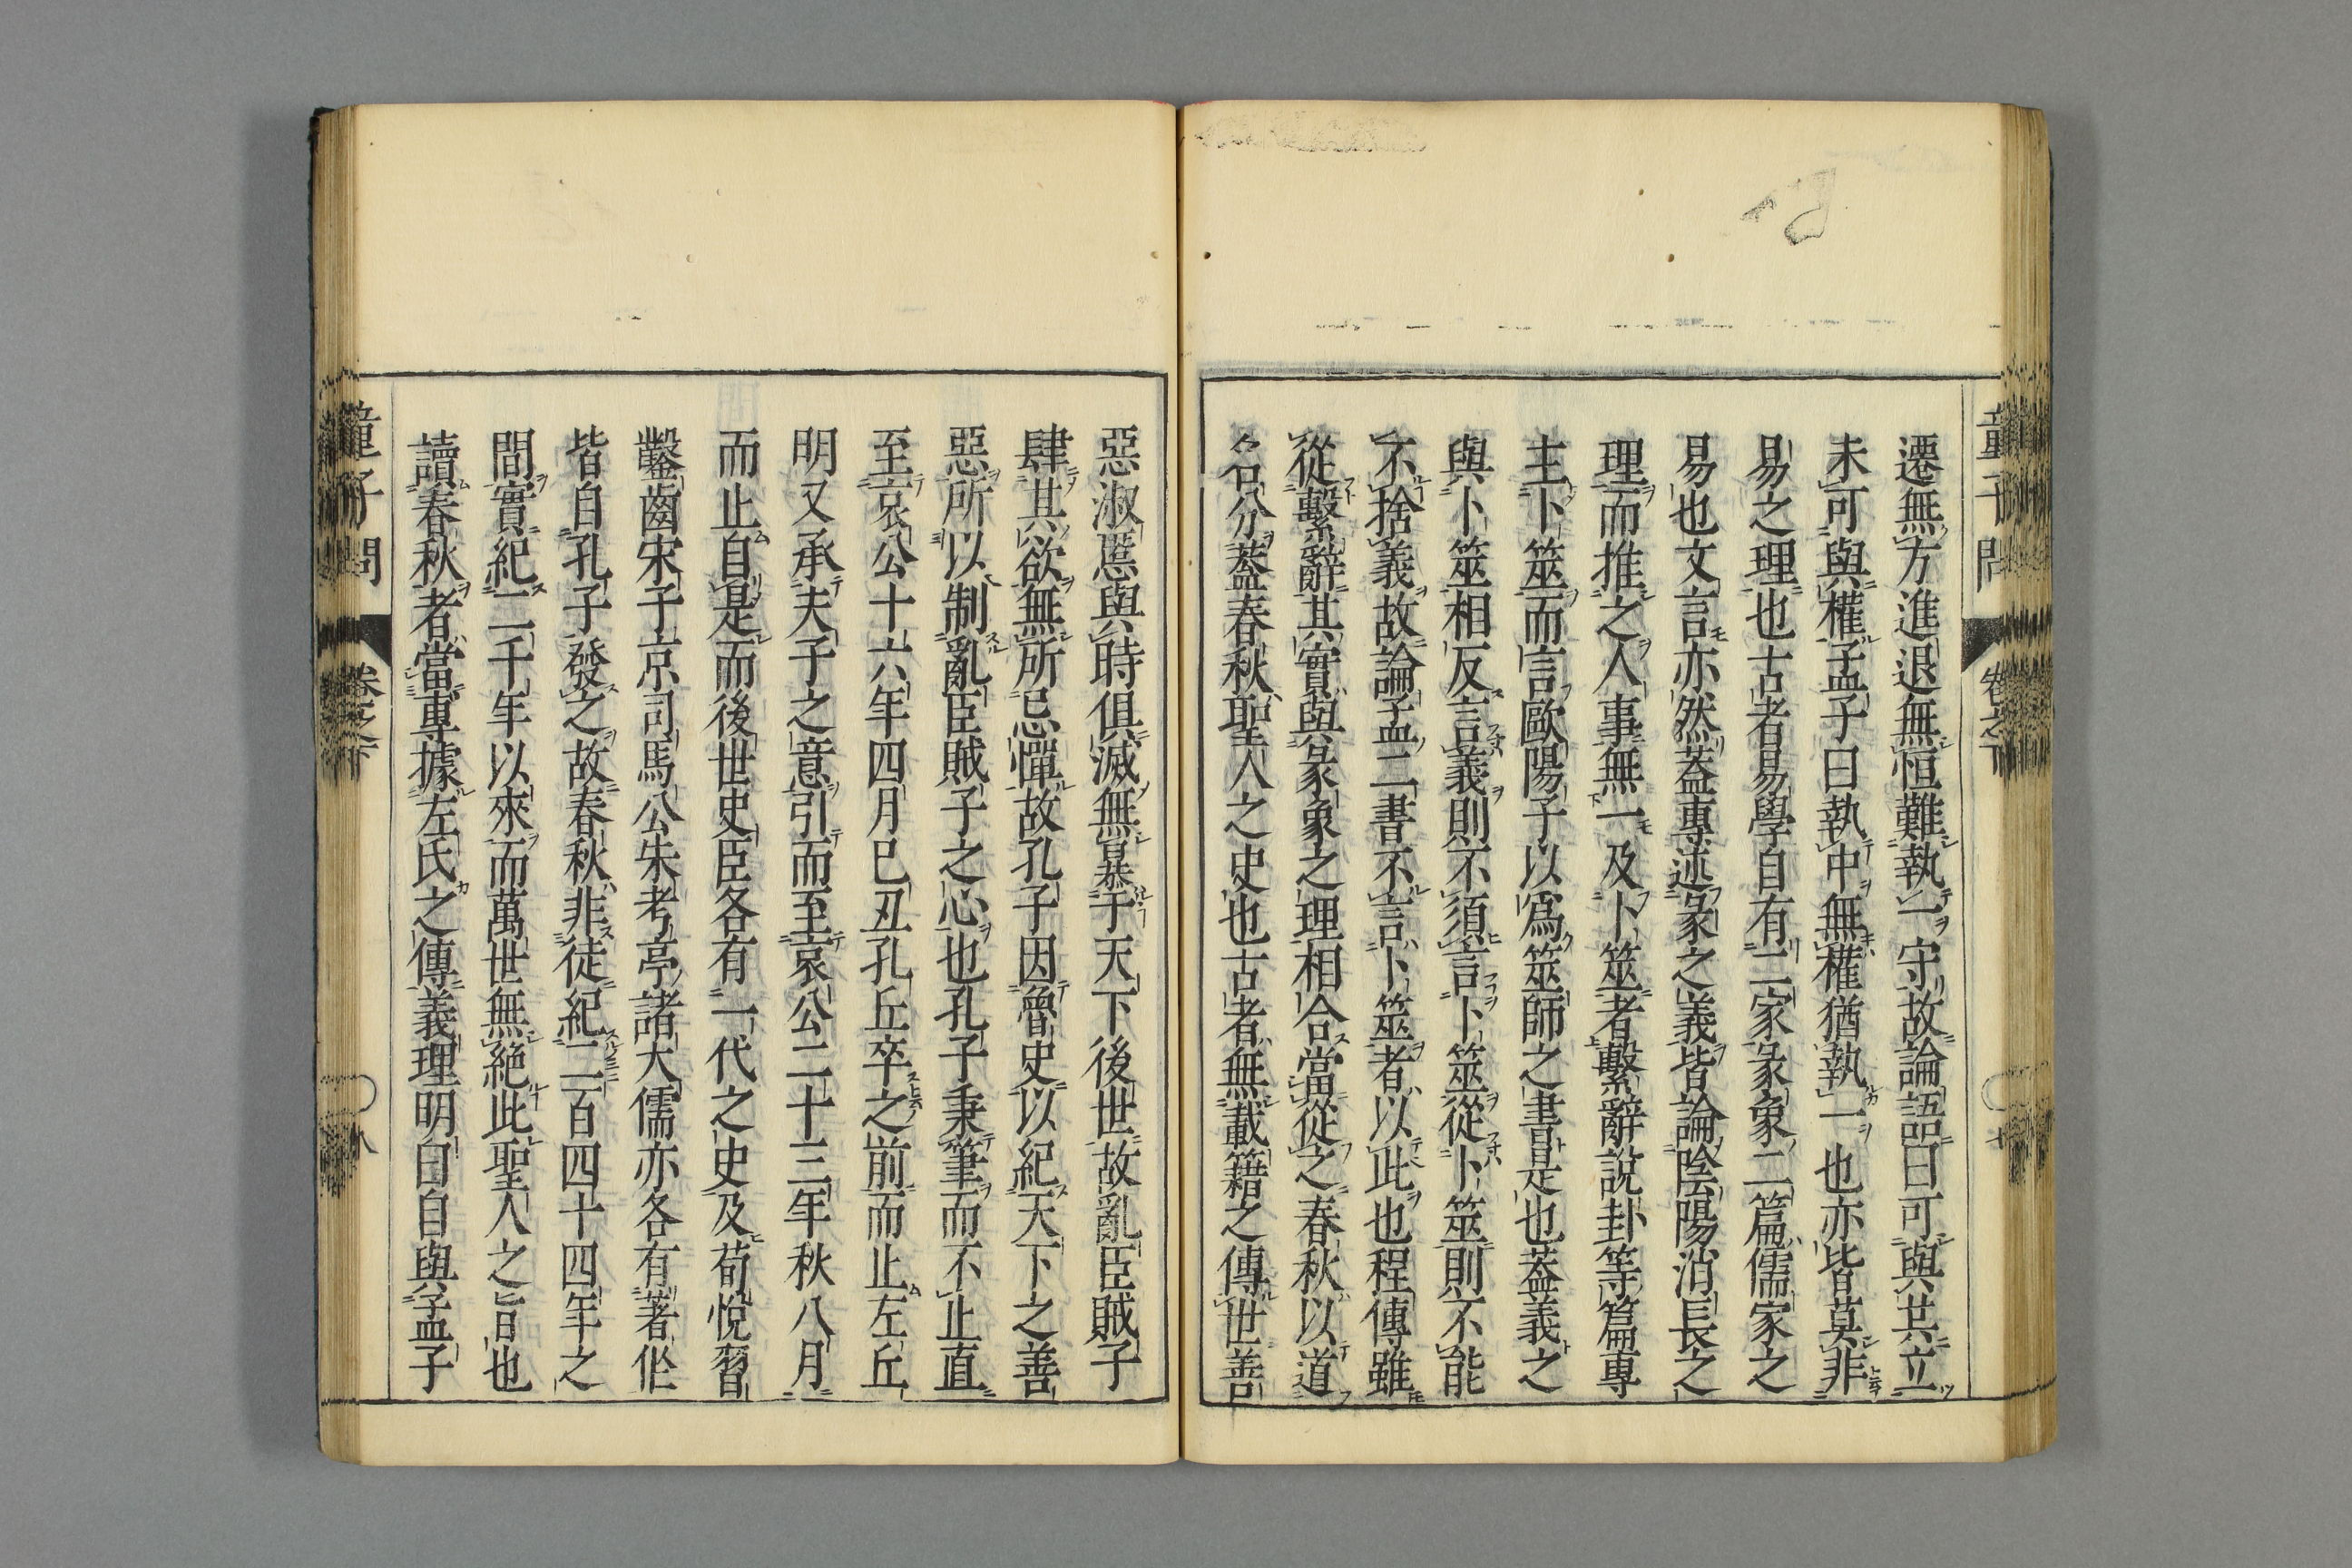 童子問 卷之下 七
遷無方進退無恒難執一守故論語曰可與共立
未可與權孟子曰執中無權猶執一也亦皆莫非
易之理也古者易學自有二家彖象二篇儒家之
易也文言亦然蓋專述彖之義皆論陰陽消長之
理而推之人事無一及卜筮者繫辭說卦等篇專
主卜筮而言歐陽子以爲筮師之書是也蓋義之
與卜筮相反言義則不須言卜筮從卜筮則不能
不捨義故論孟二書不言卜筮者以此也程傳雖
從繫辭其實與彖象之理相合當從之春秋以道
名分蓋春秋聖人之史也古者無載籍之傳世善
惡淑慝與時俱滅無暴于天下後世故亂臣賊子
肆其欲無所忌憚故孔子因魯史以紀天下之善
惡所以制亂臣賊子之心也孔子秉筆而不止直
至哀公十六年四月己丑孔丘卒之前而止左丘
明又承夫子之意引而至哀公二十三年秋八月
而止自是而後世史臣各有一代之史及荀悅習
鑿齒宋子京司馬公朱考亭諸大儒亦各有著作
皆自孔子發之故春秋非徒紀二百四十四年之
間實紀二千年以來而萬世無絕此聖人之旨也
讀春秋者當專據左氏之傳義理明白自與孟子
童子問 卷之下 八